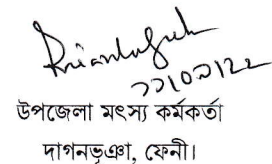 ২১০২১২২
উপজেলা মৎস্য কর্মকর্তা
দাগনভূঞা, ফেনী।